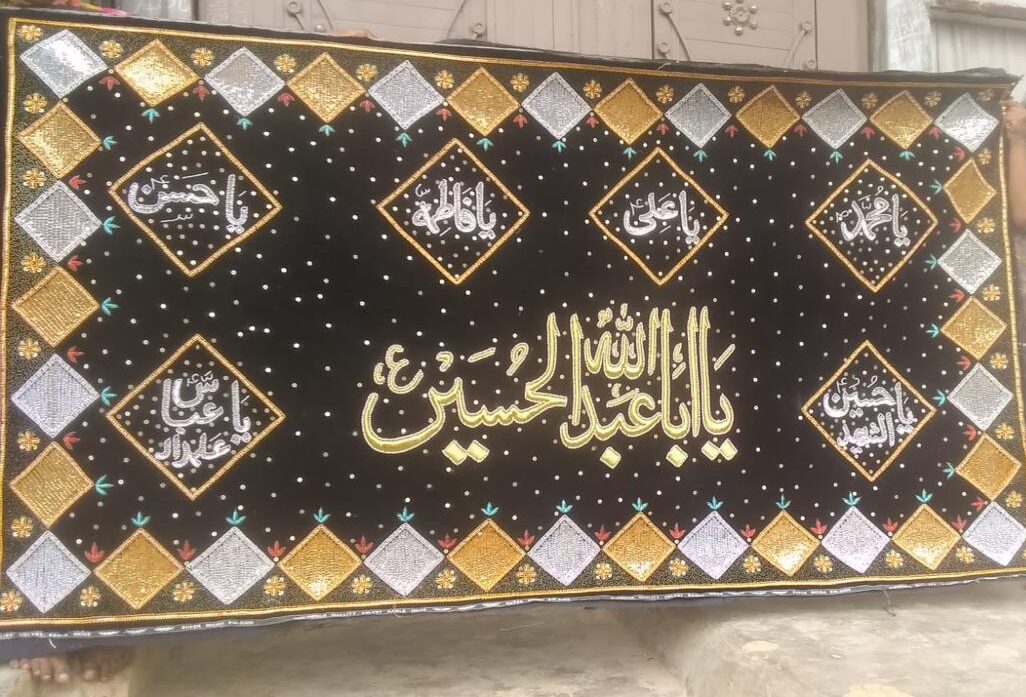 یا محمدؐ
یا علیؑ
یا فاطمہؑ
یا حسنؑ
یا ابا عبد الله الحسینؑ
یا حسینؑ
الشہید
یا عباسؑ
علمدار